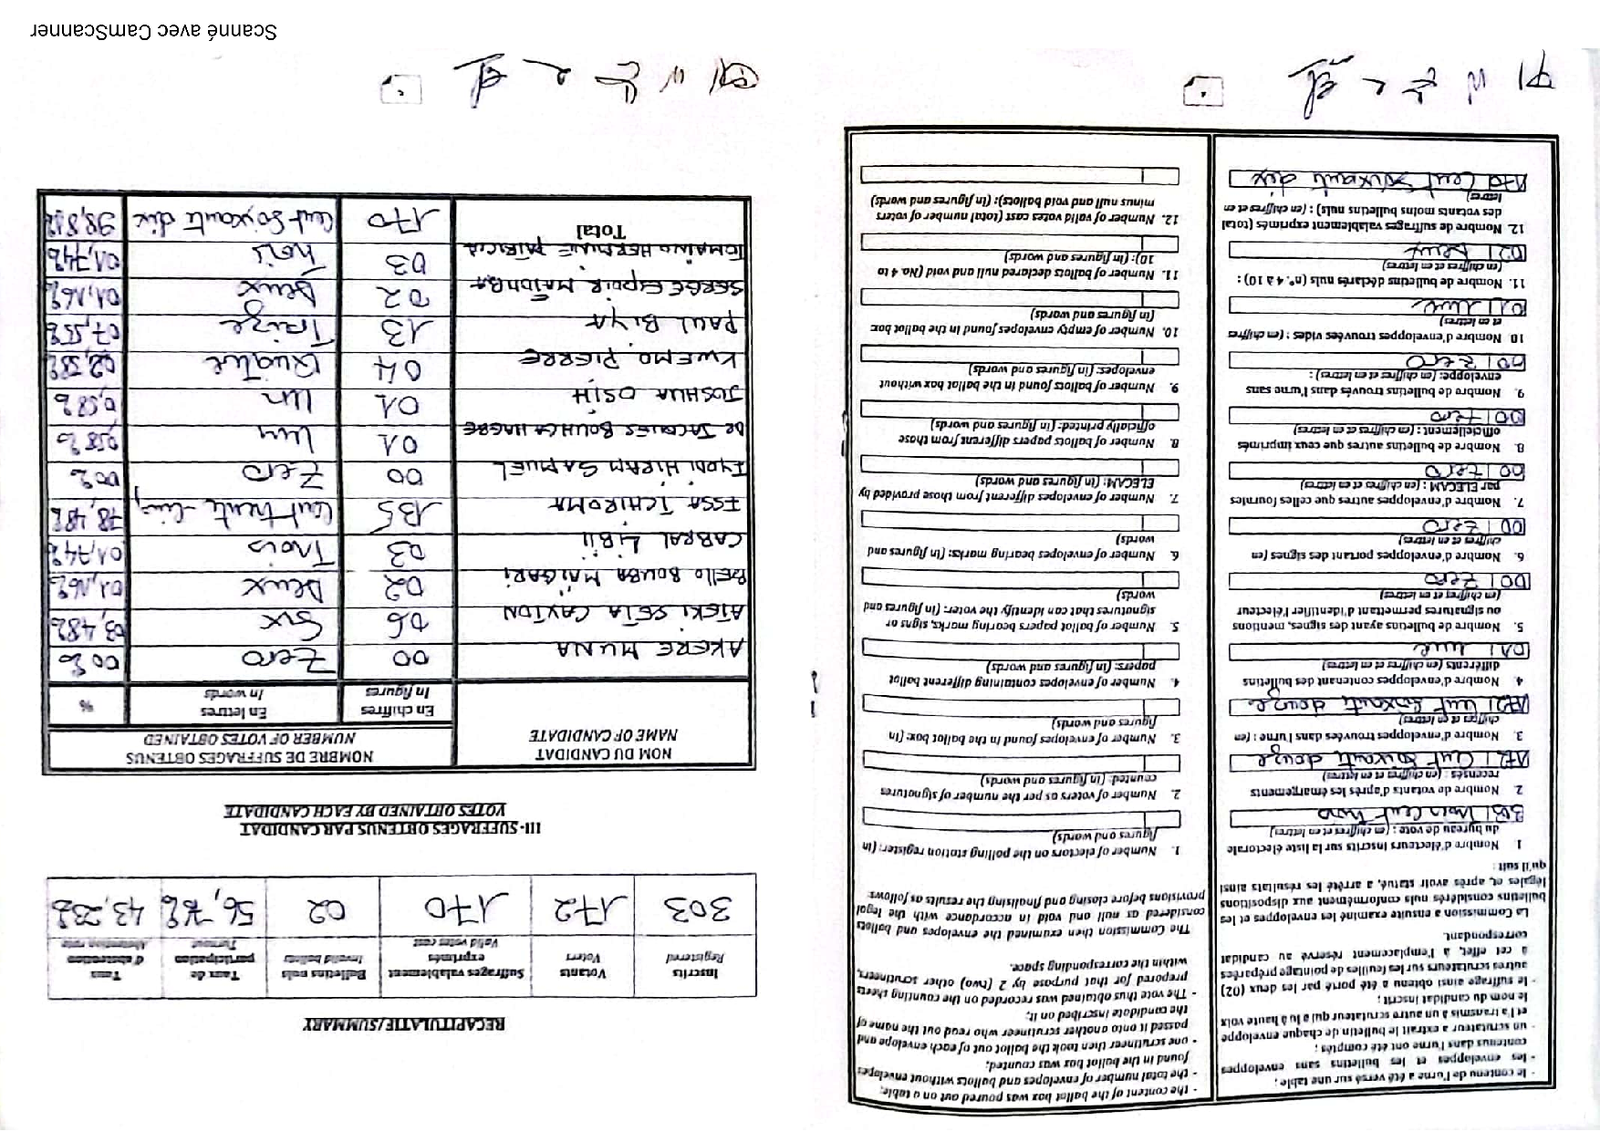 - le contenu de l'urne a été versé sur une table ;
- les enveloppes et les bulletins sans enveloppes
contenus dans l'urne ont été comptés ;
- un scrutateur a extrait le bulletin de chaque enveloppe
et l'a transmis à un autre scrutateur qui a lu à haute voix
le nom du candidat inscrit ;
- le suffrage ainsi obtenu a été porté par les deux (02)
autres scrutateurs sur les feuilles de pointage préparées
à cet effet, à l'emplacement réservé au candidat
correspondant.
La Commission a ensuite examiné les enveloppes et les
bulletins considérés nuls conformément aux dispositions
légales et, après avoir statué, a arrêté les résultats ainsi
qu'il suit :
1 Nombre d'électeurs inscrits sur la liste électorale
du bureau de vote : (en chiffres et en lettres)
303 | trois cent trois
2. Nombre de votants d'après les émargements
recensés : (en chiffres et en lettres)
172 | Cent soixante douze
3. Nombre d'enveloppes trouvées dans l'urne : (en
chiffres et en lettres)
172 | Cent soixante douze
4. Nombre d'enveloppes contenant des bulletins
différents (en chiffres et en lettres)
01 | une
5. Nombre de bulletins ayant des signes, mentions
ou signatures permettant d'identifier l'électeur
(en chiffres et en lettres)
00 | Zero
6. Nombre d'enveloppes portant des signes (en
chiffres et en lettres)
00 | Zero
7. Nombre d'enveloppes autres que celles fournies
par ELECAM : (en chiffres et en lettres)
00 | Zero
8. Nombre de bulletins autres que ceux imprimés
officiellement : (en chiffres et en lettres)
00 | Zero
9. Nombre de bulletins trouvés dans l'urne sans
enveloppe: (en chiffres et en lettres) :
00 | Zero
10 Nombre d'enveloppes trouvées vides : (en chiffres
et en lettres)
01 | une
11. Nombre de bulletins déclarés nuls (n°. 4 à 10) :
(en chiffres et en lettres)
02 | Deux
12. Nombre de suffrages valablement exprimés (total
des votants moins bulletins nuls) : (en chiffres et en
lettres)
170 | Cent soixante dix
- the content of the ballot box was poured out on a table;
- the total number of envelopes and ballots without envelopes
found in the ballot box was counted;
- one scrutineer then took the ballot out of each envelope and
passed it onto another scrutineer who read out the name of
the candidate inscribed on it;
- The vote thus obtained was recorded on the counting sheets
prepared for that purpose by 2 (two) other scrutineers,
within the corresponding space.
The Commission then examined the envelopes and ballots
considered as null and void in accordance with the legal
provisions before closing and finalising the results as follows:
1. Number of electors on the polling station register: (in
figures and words)
2. Number of voters as per the number of signatures
counted: (in figures and words)
3. Number of envelopes found in the ballot box: (in
figures and words)
4. Number of envelopes containing different ballot
papers: (in figures and words)
5. Number of ballot papers bearing marks, signs or
signatures that can identify the voter: (in figures and
words)
6. Number of envelopes bearing marks: (in figures and
words)
7. Number of envelopes different from those provided by
ELECAM: (in figures and words)
8. Number of ballots papers different from those
officially printed: (in figures and words)
9. Number of ballots found in the ballot box without
envelopes: (in figures and words)
10. Number of empty envelopes found in the ballot box:
(in figures and words)
11. Number of ballots declared null and void (No. 4 to
10): (in figures and words)
12. Number of valid votes cast (total number of voters
minus null and void ballots): (in figures and words)
RECAPITULATIF/SUMMARY
Inscrits Registered | Votants Voters | Suffrages valablement exprimés Valid votes cast | Bulletins nuls Invalid ballots | Taux de participation Turnout | Taux d'abstention Abstention rate
303 | 172 | 170 | 02 | 56,76% | 43,23%
III- SUFFRAGES OBTENUS PAR CANDIDAT
VOTES OBTAINED BY EACH CANDIDATE
NOM DU CANDIDAT NAME OF CANDIDATE | NOMBRE DE SUFFRAGES OBTENUS NUMBER OF VOTES OBTAINED
En chiffres In figures | En lettres In words | %
AKERE MUNA | 00 | Zero | 00%
ATEKI SETA CAXTON | 06 | Six | 03,48%
Bello BOUBA MAIGARI | 02 | Deux | 01,16%
CABRAL LIBII | 03 | Trois | 01,74%
ISSA TCHIROMA | 135 | Cent trente-cinq | 78,48%
IYODI HIRAM SAMUEL | 00 | Zero | 00%
De JACQUES BOUHGA HAGBE | 01 | Un | 0,58%
JOSHUA OSIH | 01 | Un | 0,58%
KWEMO PIERRE | 04 | Quatre | 02,32%
PAUL BIYA | 13 | Treize | 07,55%
SERGE ESPOIR MATOMBA | 02 | Deux | 01,16%
TOMAINO HERMINE PATRICIA | 03 | Trois | 01,74%
Total | 170 | Cent soixante dix | 98,83%
Scanné avec CamScanner